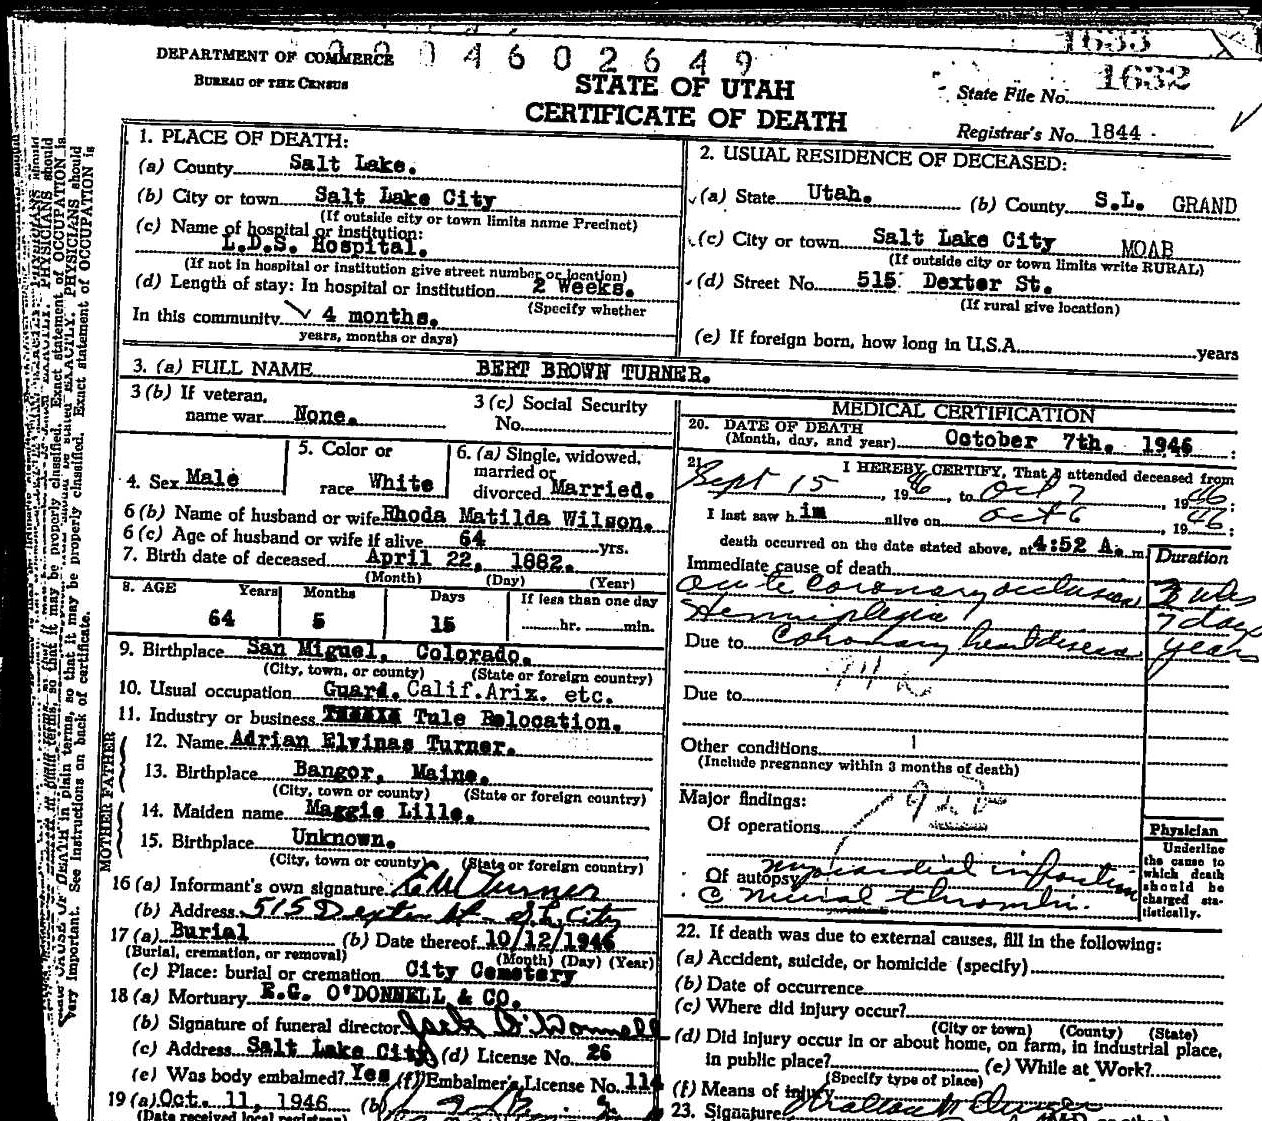 DEPARTMENT OF COMMERCE
BUREAU OF THE CENSUS
04602649
STATE OF UTAH
CERTIFICATE OF DEATH
1633
State File No. 1632
Registrar's No. 1844
1. PLACE OF DEATH:
(a) County Salt Lake.
(b) City or town Salt Lake City
(If outside city or town limits name Precinct)
(c) Name of hospital or institution:
L.D.S. Hospital.
(If not in hospital or institution give street number or location)
(d) Length of stay: In hospital or institution 2 Weeks.
(Specify whether
In this community 4 months.
years, months or days)
2. USUAL RESIDENCE OF DECEASED:
(a) State Utah. (b) County S.L. GRAND
(c) City or town Salt Lake City MOAB
(If outside city or town limits write RURAL)
(d) Street No. 515 Dexter St.
(If rural give location)
(e) If foreign born, how long in U.S.A. years
3. (a) FULL NAME BERT BROWN TURNER.
3 (b) If veteran,
name war None.
3 (c) Social Security
No.
4. Sex Male
5. Color or
race White
6. (a) Single, widowed,
married or
divorced Married.
6 (b) Name of husband or wife Rhoda Matilda Wilson.
6 (c) Age of husband or wife if alive 64 yrs.
7. Birth date of deceased April 22, 1882.
(Month) (Day) (Year)
8. AGE Years Months Days If less than one day
64 5 15 hr. min.
9. Birthplace San Miguel, Colorado.
(City, town, or county) (State or foreign country)
10. Usual occupation Guard. Calif.Arix. etc.
11. Industry or business Tule Relocation.
FATHER
12. Name Adrian Elvinas Turner.
13. Birthplace Bangor, Maine.
(City, town or county) (State or foreign country)
MOTHER
14. Maiden name Maggie Lille.
15. Birthplace Unknown.
(City, town or county) (State or foreign country)
16 (a) Informant's own signature E W Turner
(b) Address 515 Dexter St - S.L. City
17 (a) Burial (b) Date thereof 10/12/1946
(Burial, cremation, or removal) (Month) (Day) (Year)
(c) Place: burial or cremation City Cemetery
18 (a) Mortuary E.G. O'DONNELL & CO.
(b) Signature of funeral director Jack O'Donnell
(c) Address Salt Lake City (d) License No. 26
(e) Was body embalmed? Yes (f) Embalmer's License No. 114
19 (a) Oct. 11, 1946 (b)
(Date received local registrar)
MEDICAL CERTIFICATION
20. DATE OF DEATH
(Month, day, and year) October 7th. 1946
21. I HEREBY CERTIFY, That I attended deceased from
Sept 15, 1946, to Oct 7, 1946:
I last saw him alive on Oct 6, 1946:
death occurred on the date stated above, at 4:52 A. m.
Duration
Immediate cause of death
Acute coronary occlusion 3 wks
Hemiplegia 7 days
Due to Coronary heart disease years
Due to
Other conditions
(Include pregnancy within 3 months of death)
Major findings:
Of operations
Of autopsy myocardial infarction
c mural thrombi.
Physician
Underline
the cause to
which death
should be
charged sta-
tistically.
22. If death was due to external causes, fill in the following:
(a) Accident, suicide, or homicide (specify)
(b) Date of occurrence
(c) Where did injury occur?
(City or town) (County) (State)
(d) Did injury occur in or about home, on farm, in industrial place,
in public place? (e) While at Work?
(Specify type of place)
(f) Means of injury
23. Signature
very important. See instructions on back of certificate.